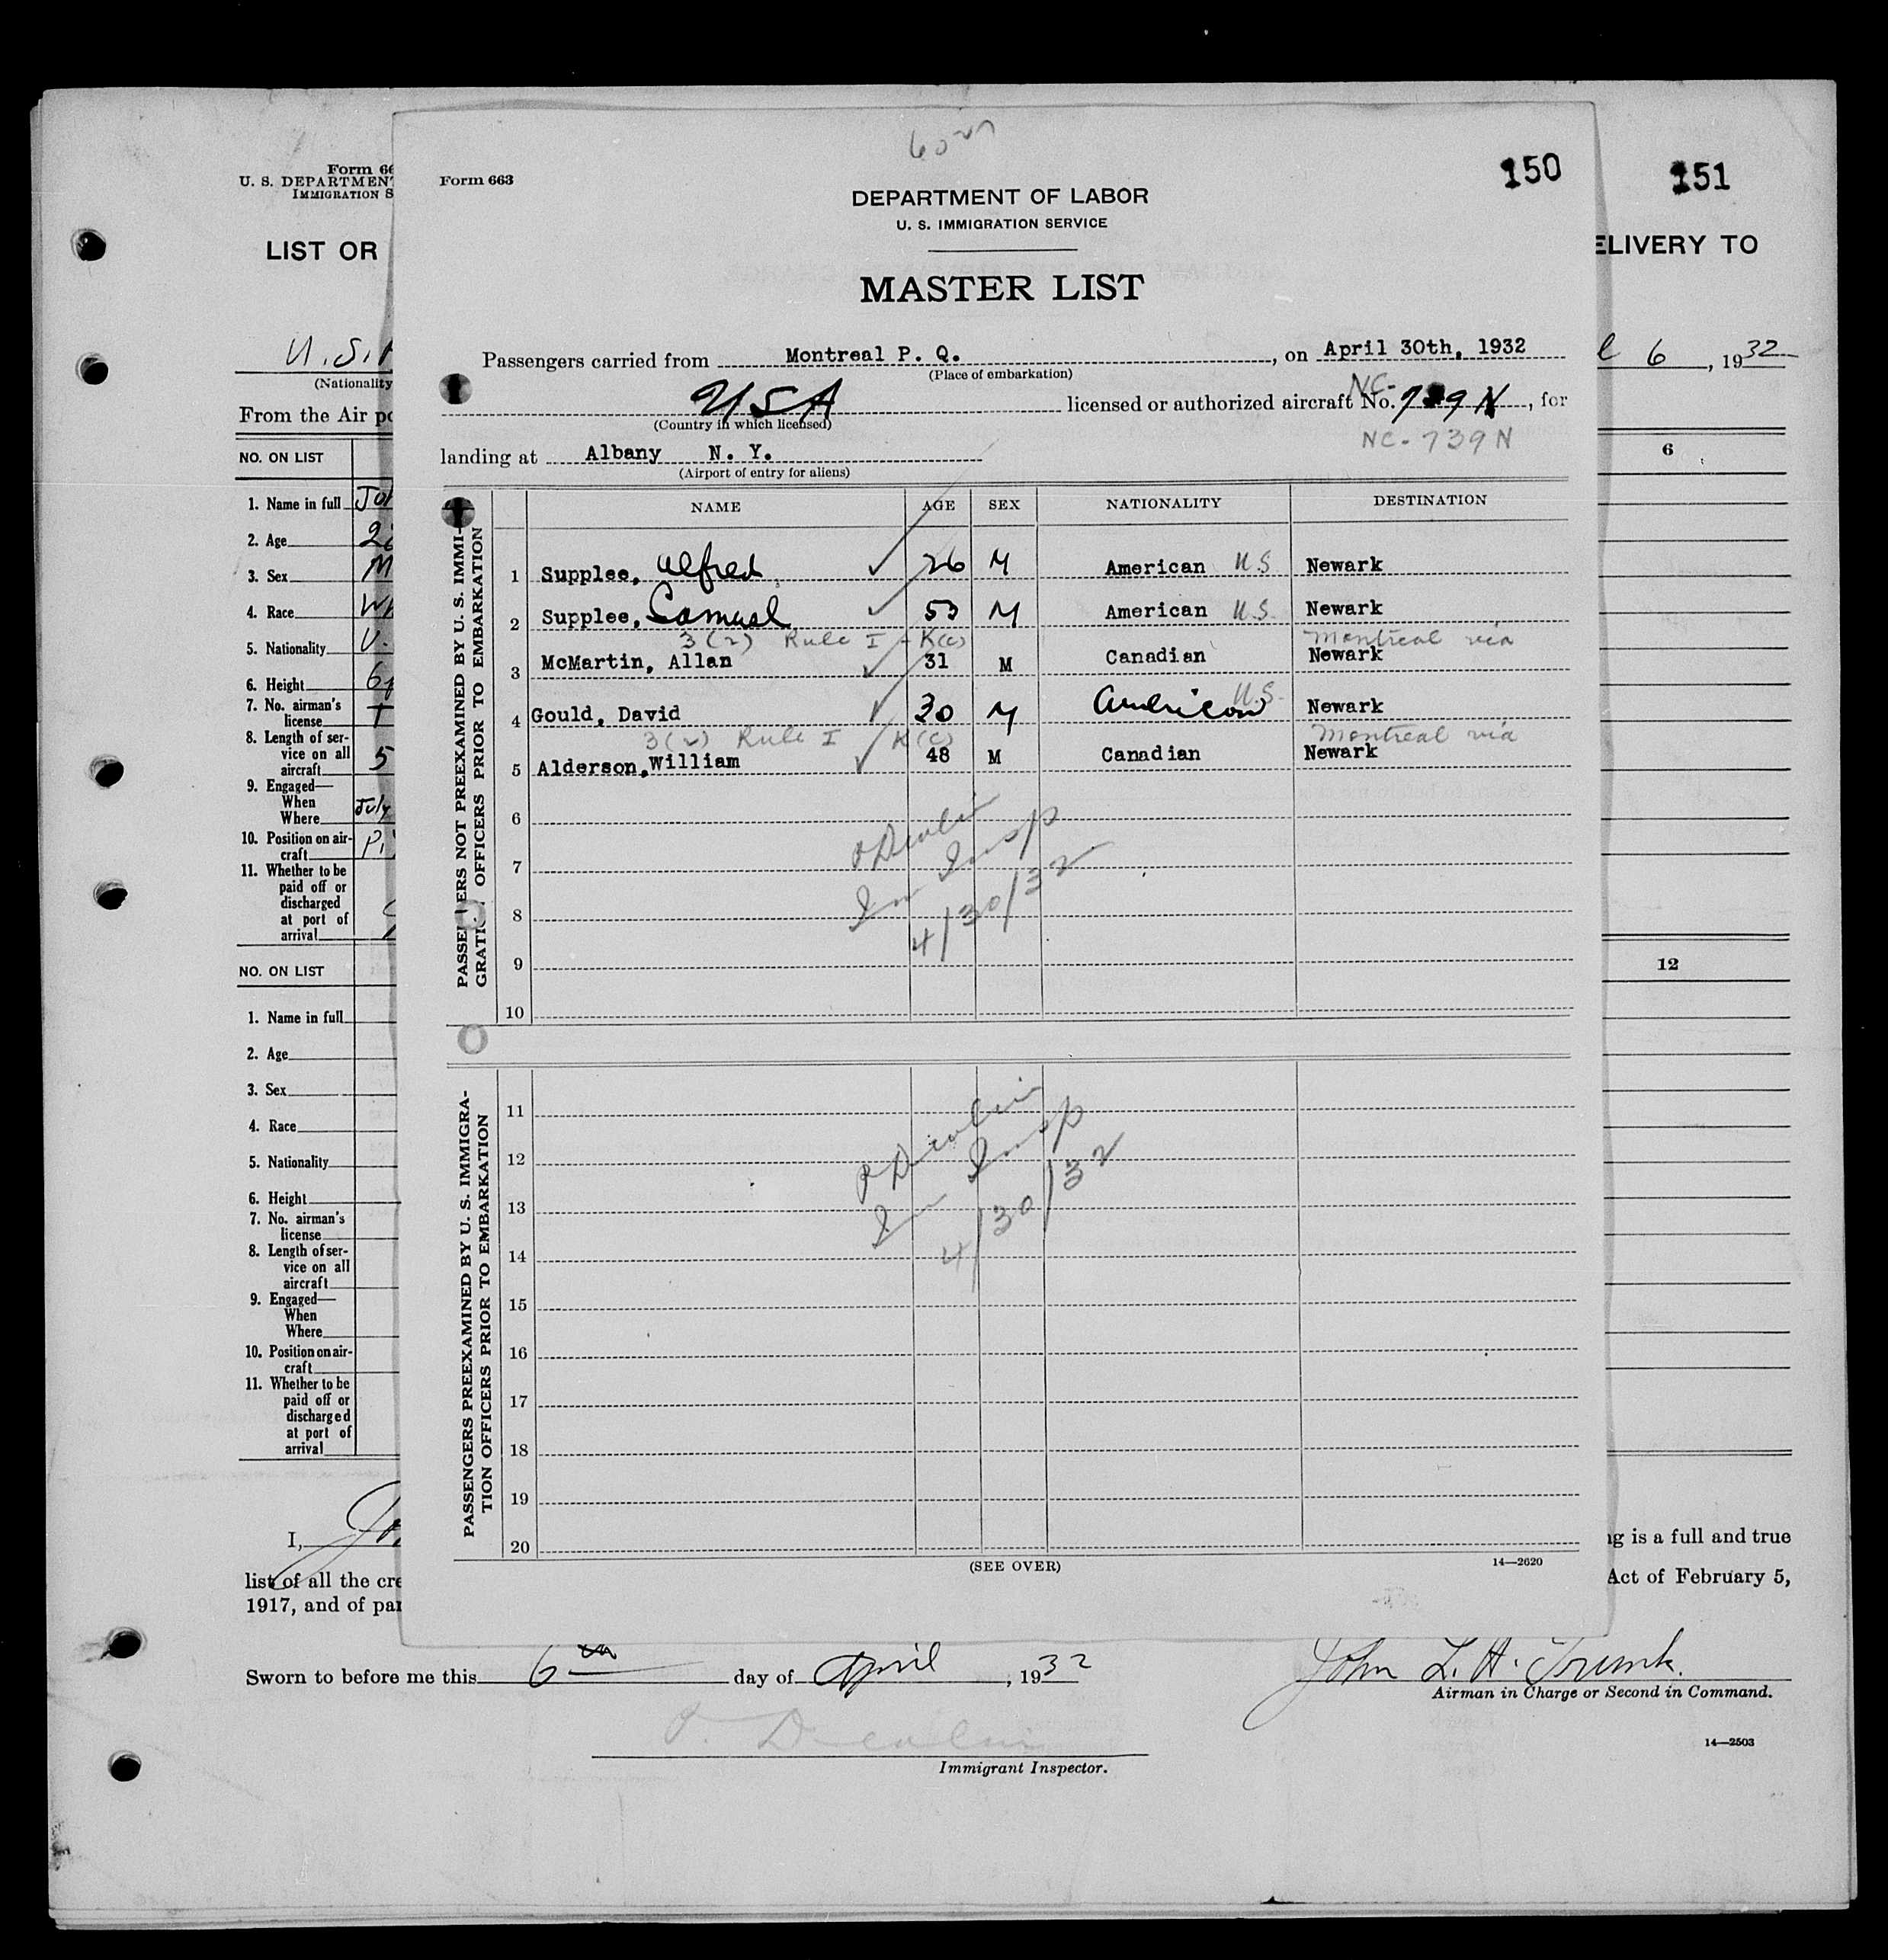 Form 663
150
DEPARTMENT OF LABOR
U. S. IMMIGRATION SERVICE
MASTER LIST
Passengers carried from Montreal P. Q., on April 30th, 1932
(Place of embarkation)
USA licensed or authorized aircraft No. NC- 739 N, for
(Country in which licensed)
NC-739N
landing at Albany N. Y.
(Airport of entry for aliens)
NAME AGE SEX NATIONALITY DESTINATION
PASSENGERS NOT PREEXAMINED BY U. S. IMMI-
GRATION OFFICERS PRIOR TO EMBARKATION
1 Supplee, Alfred 26 M American U.S Newark
2 Supplee, Samuel 53 M American U.S. Newark
3(2) Rule I - K(c) Montreal via
3 McMartin, Allan 31 M Canadian Newark
4 Gould, David 30 M American U.S. Newark
3(2) Rule I K(c) Montreal via
5 Alderson, William 48 M Canadian Newark
6
7
8
9
10
Im Insp
4/30/32
PASSENGERS PREEXAMINED BY U. S. IMMIGRA-
TION OFFICERS PRIOR TO EMBARKATION
11
12
13
14
15
16
17
18
19
20
Im Insp
4/30/32
(SEE OVER)
14—2620
Form 66
U. S. DEPARTMENT
IMMIGRATION S
151
LIST OR
ELIVERY TO
U.S.
(Nationality
6, 1932
From the Air po
NO. ON LIST
6
1. Name in full
2. Age
3. Sex M
4. Race
5. Nationality U.
6. Height
7. No. airman's
license
8. Length of ser-
vice on all
aircraft 5
9. Engaged—
When
Where July
10. Position on air-
craft
11. Whether to be
paid off or
discharged
at port of
arrival
NO. ON LIST
12
1. Name in full
2. Age
3. Sex
4. Race
5. Nationality
6. Height
7. No. airman's
license
8. Length of ser-
vice on all
aircraft
9. Engaged—
When
Where
10. Position on air-
craft
11. Whether to be
paid off or
discharged
at port of
arrival
I,
ng is a full and true
list of all the cre
Act of February 5,
1917, and of par
Sworn to before me this 6th day of April, 1932
John L. H. Trunk.
Airman in Charge or Second in Command.
Immigrant Inspector.
14—2503